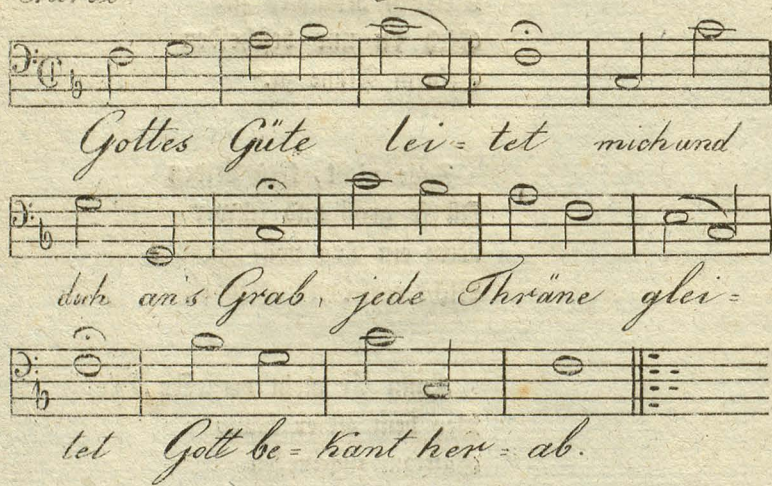 Gottes Güte lei= tet mich und
dich an's Grab, jede Thräne glei=
tet Gott be= kant her= ab.